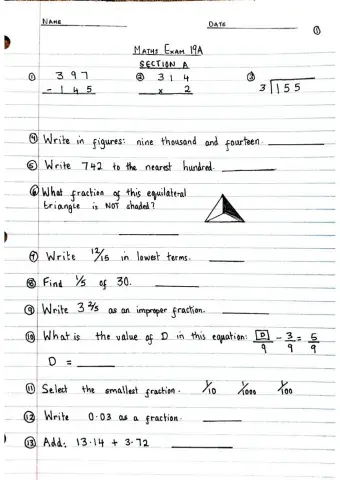 NAME DATE ①
MATHS EXAM 19A
SECTION A
① 397 ② 314 ③
- 145 x 2 3)155
④ Write in figures: nine thousand and fourteen.
⑤ Write 742 to the nearest hundred.
⑥ What fraction of this equilateral
triangle is NOT shaded?
⑦ Write 12/15 in lowest terms.
⑧ Find 1/5 of 30.
⑨ Write 3 2/5 as an improper fraction.
⑩ What is the value of D in this equation: D/9 - 3/9 = 5/9
D =
⑪ Select the smallest fraction. 1/10 1/1000 1/100
⑫ Write 0.03 as a fraction.
⑬ Add: 13.14 + 3.72